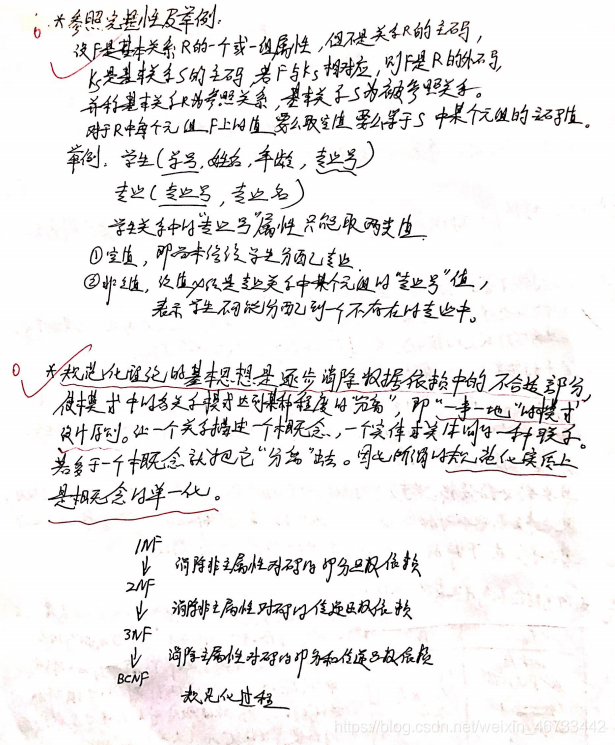 *参照完整性及举例.
设F是基本关系R的一个或一组属性,但不是关系R的主码,
Ks是基本关系S的主码,若F与Ks相对应,则F是R的外码,
并称基本关系R为参照关系,基本关系S为被参照关系。
对于R中每个元组F上的值 要么取空值 要么等于S中某个元组的主码值。
举例. 学生(学号,姓名,年龄,专业号)
专业(专业号,专业名)
学生关系中的"专业号"属性只能取两类值
①空值,即尚未给该学生分配专业.
②非空值,该值必须是专业关系中某个元组的"专业号"值,
表示学生不可能分配到一个不存在的专业中。
*规范化理论的基本思想是逐步消除数据依赖中的不合适部分,
使模式中的各关系模式达到某种程度的"分离",即"一事一地"的模式
设计原则。让一个关系描述一个概念,一个实体或实体间的一种联系。
若多于一个概念就把它"分离"出去。因此所谓的规范化实质上
是概念的单一化。
1NF
↓ 消除非主属性对码的部分函数依赖
2NF
↓ 消除非主属性对码的传递函数依赖
3NF
↓ 消除主属性对码的部分和传递函数依赖
BCNF
规范化过程
https://blog.csdn.net/weixin_46733442